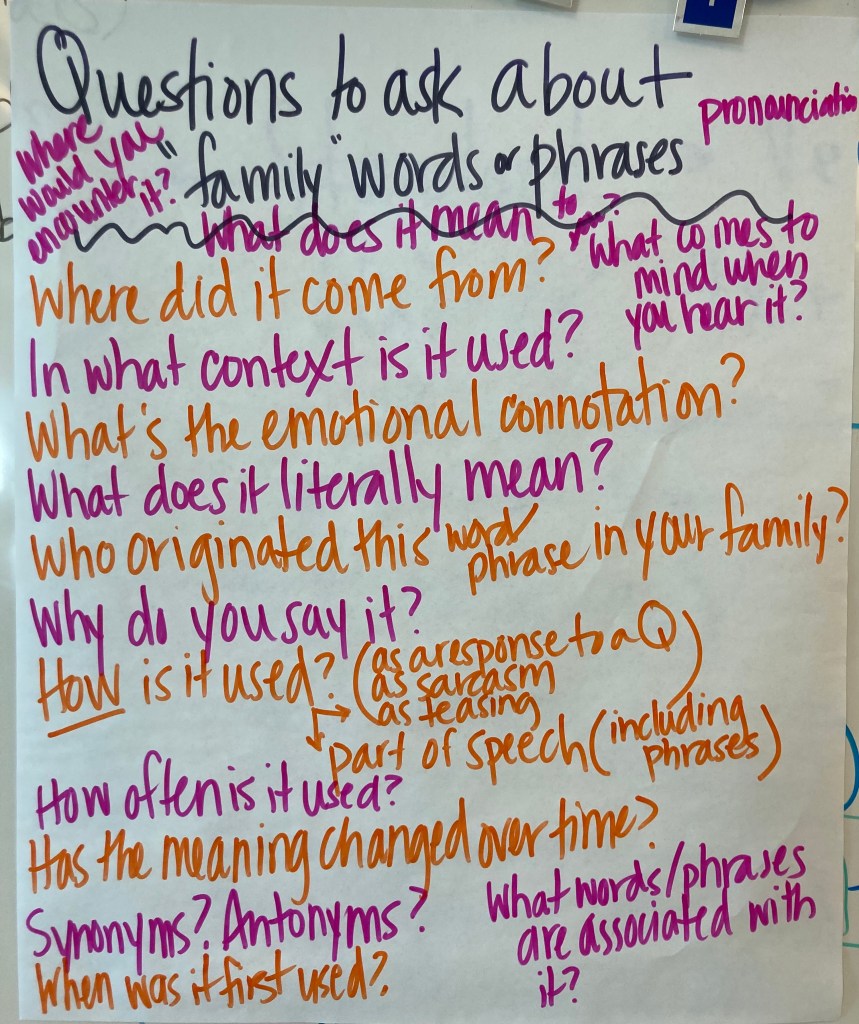 Questions to ask about
"family" words or phrases
pronounciation
Where
would you
encounter
it?
What does it mean to you?
What comes to
mind when
you hear it?
Where did it come from?
In what context is it used?
What's the emotional connotation?
What does it literally mean?
Who originated this word/
phrase in your family?
Why do you say it?
How is it used? (as a response to a Q
as sarcasm
as teasing)
part of speech (including
phrases)
How often is it used?
Has the meaning changed over time?
Synonyms? Antonyms?
What words/phrases
are associated with
it?
When was it first used?